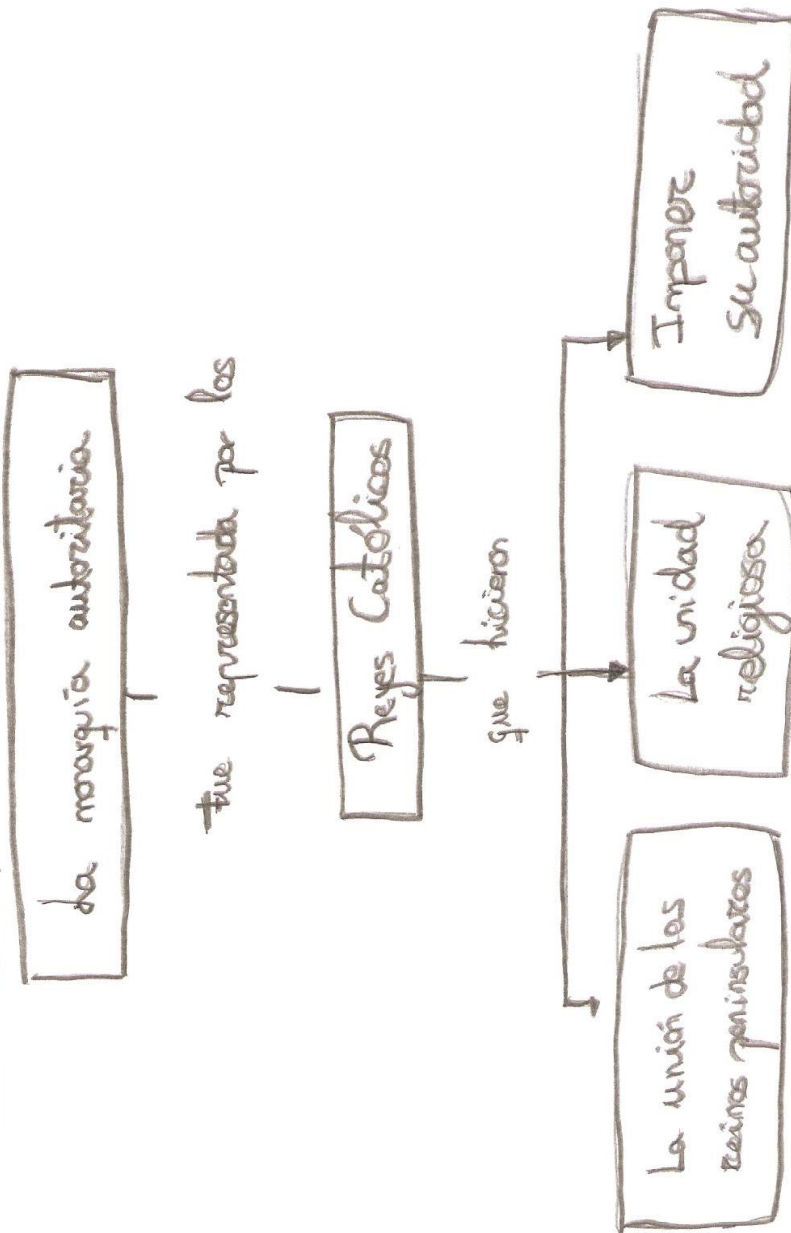 La monarquía autoritaria
fue representada por los
Reyes Católicos
que hicieron
La unión de los
reinos peninsulares
La unidad
religiosa
Imponer
su autoridad